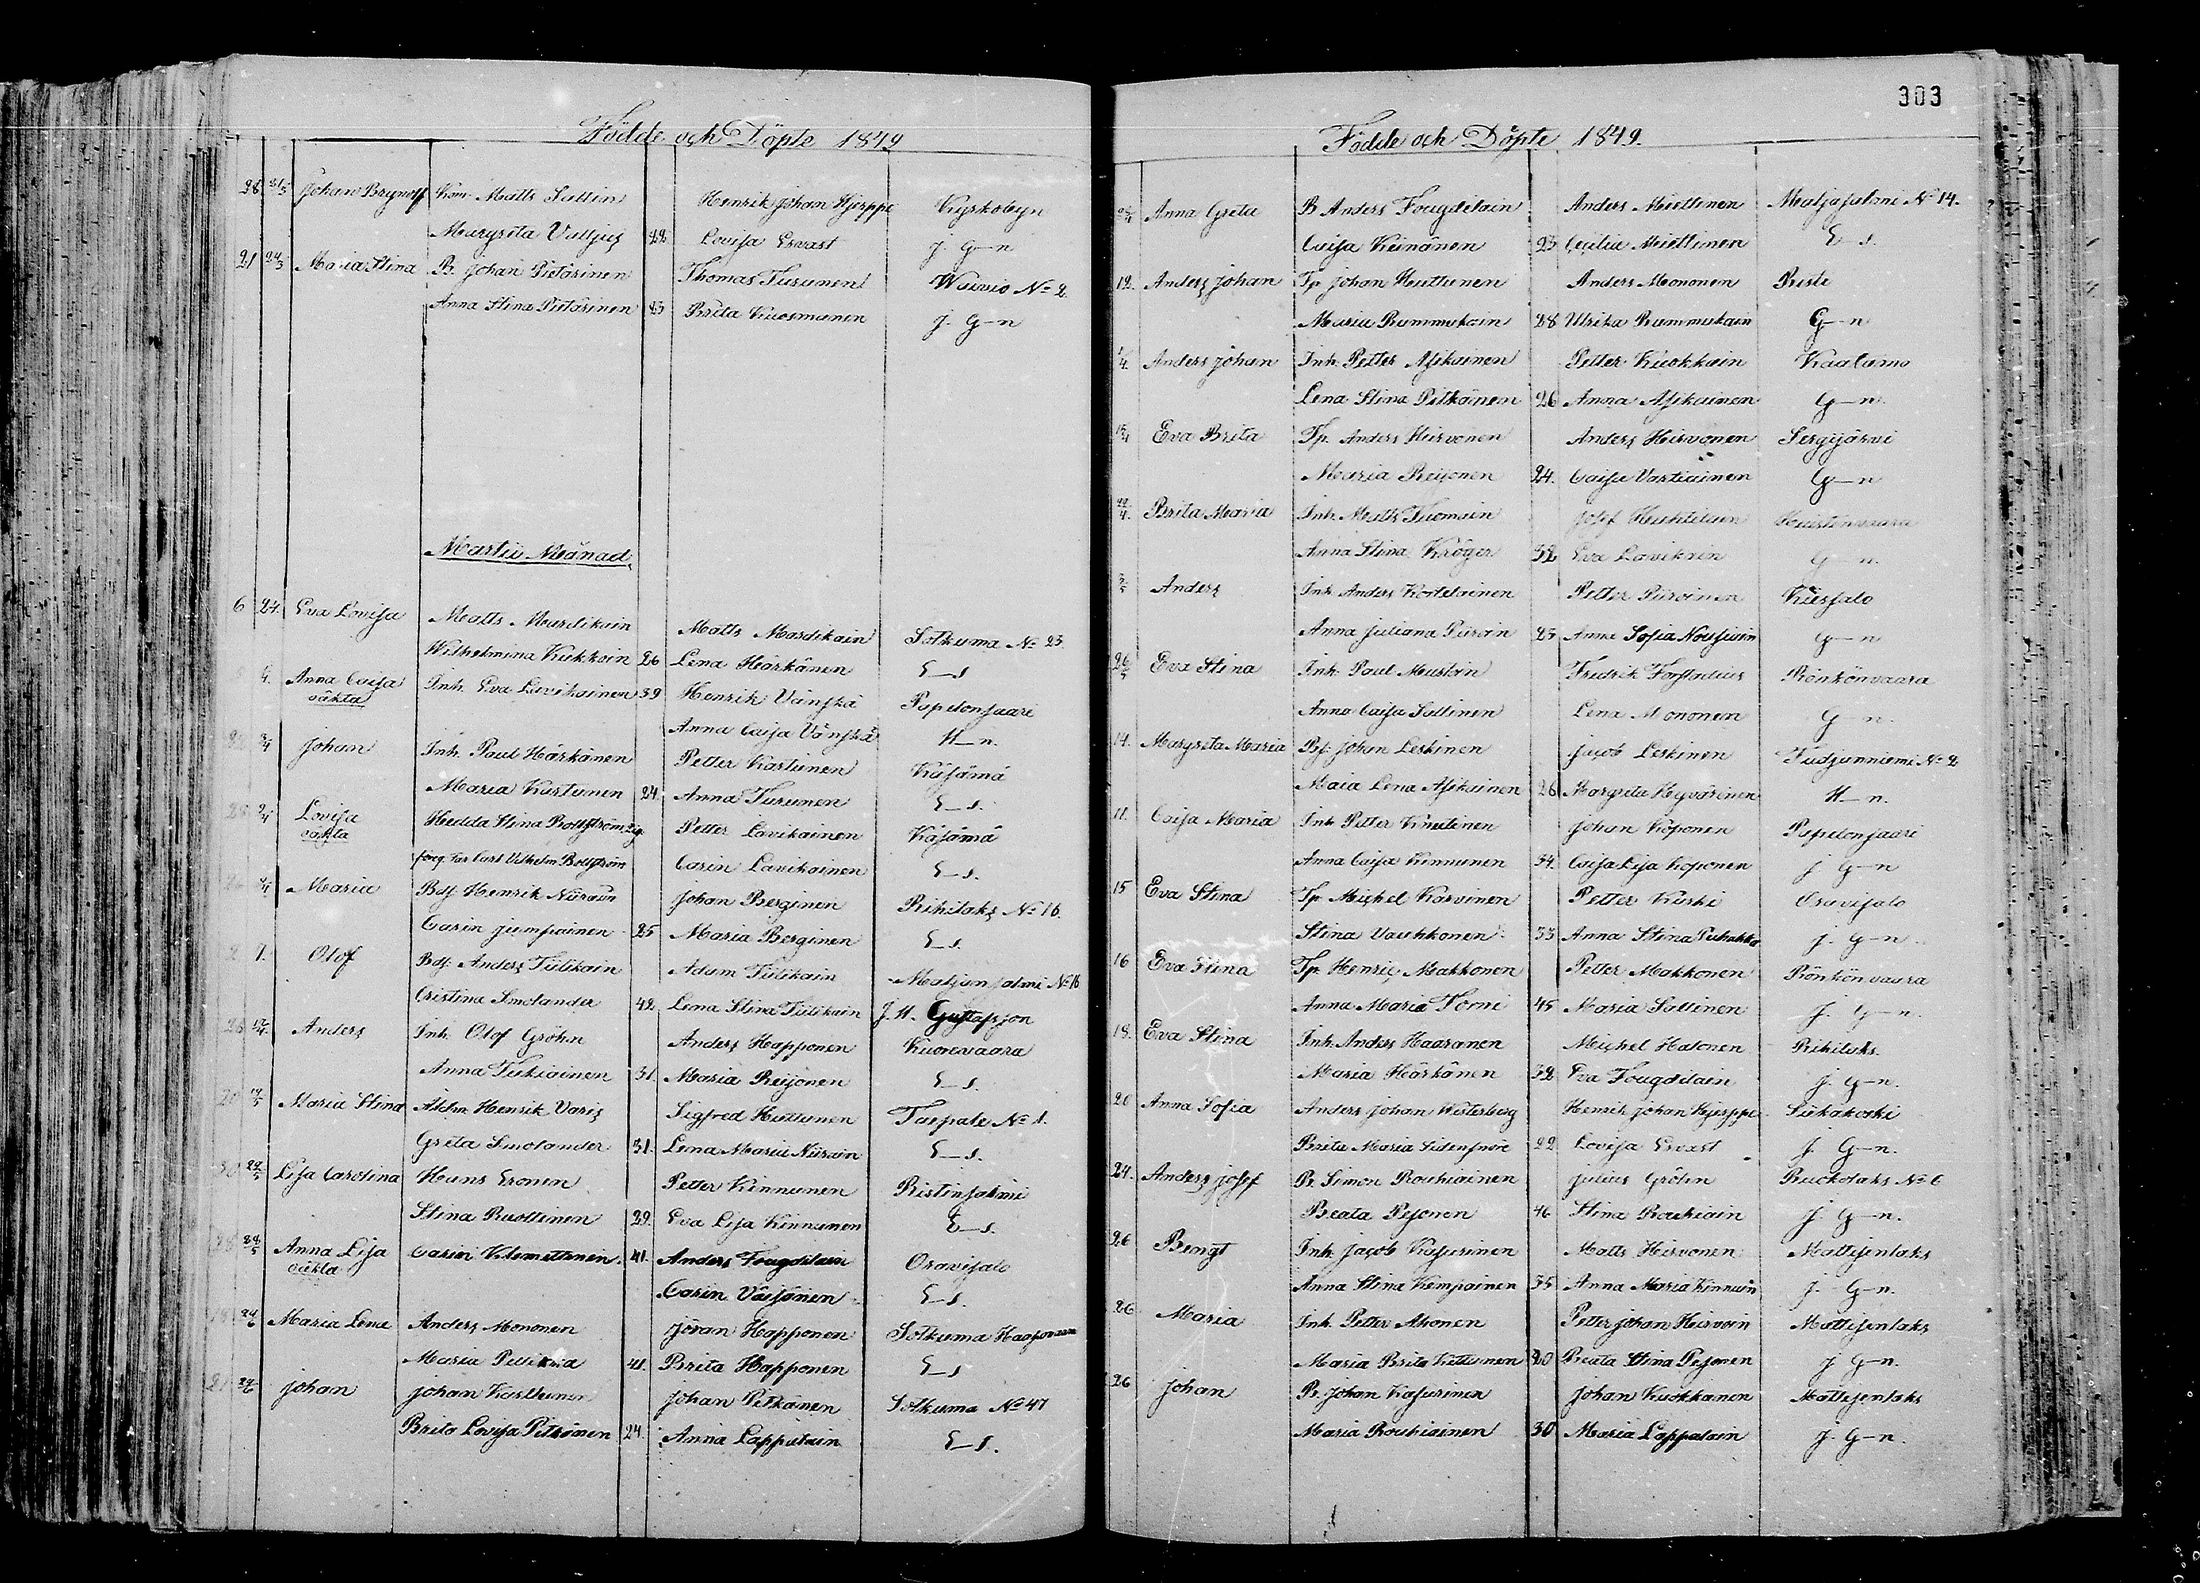 303
Födde och Döpte 1849
28 31/3 Johan Brynolf Matts Sallin Henrik Johan Hjerppe Kyrkobyn
Margreta Valljus 22 Lovisa Ervast J. G-n
21 24/3 Maria Stina B. Johan Pietarinen Thomas Turunen Wuivio No 2.
Anna Stina Pietarinen 23 Brita Kuosmanen J. G-n
Martii Månad
6 24. Eva Lovisa Matts Mardikain Matts Mardikain Sotkuma No 23.
Wilhelmina Kukkoin 26 Lena Härkönen E-s
4. Anna Caisa Inh. Eva Lavikainen 39 Henrik Vänskä Papelonsaari
oäkta Anna Caisa Vänskä H-n.
Johan Inh. Paul Härkönen Petter Kastinen Käsämä
Maria Kastunen 24. Anna Turunen E-s.
Lovisa Hedda Stina Bollström Petter Lavikainen Käsämä
oäkta Carl Vilhelm Bollström Carin Lavikainen E-s.
Maria Bdf. Henrik Niiroin Johan Berginen Rihilaks No 16.
Carin Jumpainen 25 Maria Berginen E-s.
1. Olof Bdf. Anders Tiilikain Adam Tiilikain Maljansalmi No 16
Cristina Smolander 42. Lena Stina Tiilikain J. H. Gustafsson
Anders Inh. Olof Gröhn Anders Happonen Kuorevaara
Anna Tiikiainen 31. Maria Reijonen E-s.
Maria Stina Henrik Varis Sigfred Huttunen Taipale No 1.
Greta Smolander 31. Lena Maria Niiroin E-s.
Lisa Carolina Hans Eronen Petter Kinnunen Ristinsalmi
Stina Ruottinen 29. Eva Lisa Kinnunen E-s.
Anna Lisa Carin Klemettinen 41. Anders Fougdilain Oravisalo
oäkta Carin Väisönen E-s.
Maria Lena Anders Mononen Jöran Happonen Sotkuma Haapovaara
Maria 41. Brita Happonen E-s
Johan Johan Karttunen Johan Pitkänen Sotkuma No 47
Brita Lovisa Pitkänen 24. Anna Lappalain E-s.
Födde och Döpte 1849.
Anna Greta B Anders Fougdilain Anders Miettinen Maljasalmi No 14.
Caisa Keinänen 23 Cecilia Miettinen E-s.
12. Anders Johan Tp Johan Huttunen Anders Mononen Riste
Maria Rummukain 28 Ulrika Rummukain G-n
1/4. Anders Johan Inh. Petter Asikainen Petter Kuokkain Kaatamo
Lena Stina Pitkänen 26 Anna Asikainen G-n.
15/4 Eva Brita Tp. Anders Hirvonen Anders Hirvonen Sergijärvi
Maria Reijonen 24. Caisa Vartiainen G-n
22/4. Brita Maria Inh. Matts Tuomain Josef Huhtilain
Anna Stina Kröger 32 Eva Lavikain G-n.
Anders Inh. Anders Kortelainen Petter Piiroinen Kiessalo
Anna Juliana Piiroin 23 Anna Sofia Nousiain G-n
26/5 Eva Stina Inh. Paul Mustoin Fredrik Forstadius Rönkönvaara
Anna Caisa Sallinen Lena Mononen G-n.
14. Margreta Maria Bf. Johan Leskinen Jacob Leskinen Tudjunniemi No 2
Maia Lena Asikainen 26 Margreta Hyvärinen H-n.
11. Caisa Maria Inh Petter Knutinen Johan Koponen Papelonsaari
Anna Caisa Kinnunen 34. Caisa Lisa Koponen J G-n
15 Eva Stina Tp. Michel Karvinen Petter Kurki Oravisalo
Stina Vauhkonen 33 Anna Stina Puhakka J. G-n.
16 Eva Stina Tp. Henric Makkonen Petter Makkonen Rönkönvaara
Anna Maria Tomi 45 Maria Sallinen J. G-n.
18. Eva Stina Inh. Anders Haaranen Michel Halonen Rihilaks.
Maria Härkönen 32 Eva Fougdilain J. G-n.
20 Anna Sofia Anders Johan Westerberg Henrik Johan Hjerppe Siikakoski
Brita Maria Sidensnöre 22 Lovisa Ervast J. G-n.
24. Anders Josef B. Simon Rouhiainen Julius Gröhn Ruokolaks No 6
Beata Pesonen 46 Stina Rouhiain J. G-n.
26 Bengt Inh. Jacob Kasurinen Matts Hirvonen Mattisenlaks
Anna Stina Kempainen 35 Anna Maria Kinnuin J. G-n.
26 Maria Inh. Petter Ahonen Petter Johan Hirvoin Mattisenlaks
Maria Brita Kettunen 20 Beata Stina Pesonen J G-n.
26 Johan B. Johan Kasurinen Johan Kuokkanen Mattisenlaks
Maria Rouhiainen 30 Maria Lappalain J. G-n.